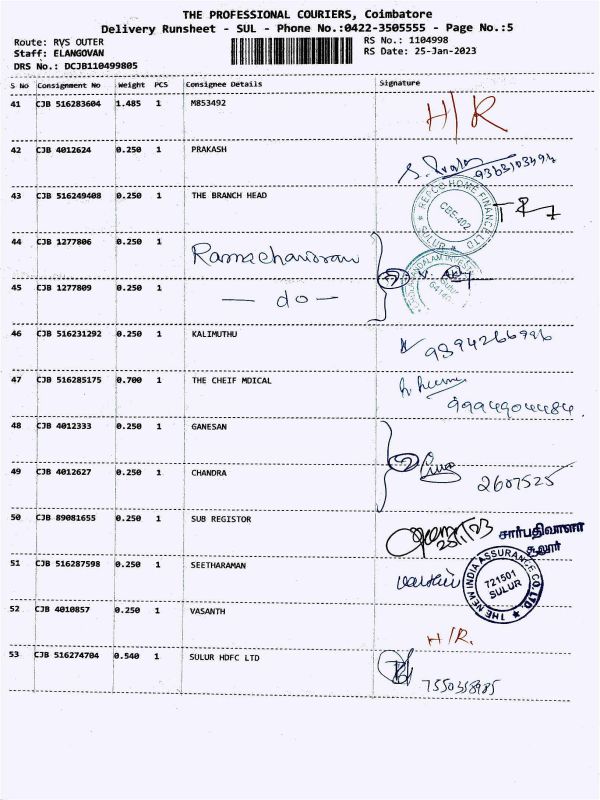 THE PROFESSIONAL COURIERS, Coimbatore
Delivery Runsheet - SUL - Phone No.:0422-3505555 - Page No.:5
Route: RVS OUTER
RS No.: 1104998
Staff: ELANGOVAN
RS Date: 25-Jan-2023
DRS No.: DCJB110499805
S No Consignment No Weight PCS Consignee Details Signature
41 CJB 516283604 1.485 1 M853492 H/R
42 CJB 4012624 0.250 1 PRAKASH
9363103494
43 CJB 516249408 0.250 1 THE BRANCH HEAD
REPCO HOME FINANCE LTD
CBE-402
SULUR
44 CJB 1277806 0.250 1
45 CJB 1277809 0.250 1 — do —
46 CJB 516231292 0.250 1 KALIMUTHU
47 CJB 516285175 0.700 1 THE CHEIF MDICAL
9994904484
48 CJB 4012333 0.250 1 GANESAN
49 CJB 4012627 0.250 1 CHANDRA
2607525
50 CJB 89081655 0.250 1 SUB REGISTOR
சார்பதிவாளர்
சூலூர்
51 CJB 516287598 0.250 1 SEETHARAMAN
THE NEW INDIA ASSURANCE CO. LTD.
721501
SULUR
52 CJB 4010857 0.250 1 VASANTH
H/R.
53 CJB 516274704 0.540 1 SULUR HDFC LTD
7550358985